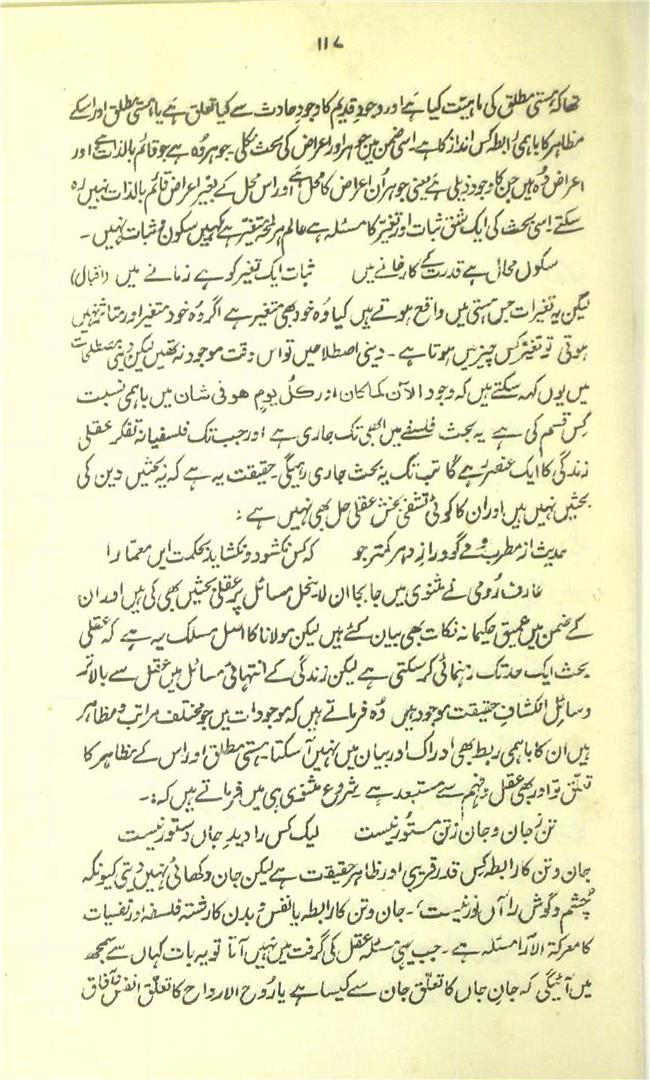 ۱۱۷
تھا کہ ہستی مطلق کی ماہیت کیا ہے اور وجودِ قدیم کا وجودِ حادث سے کیا تعلق ہے یا ہستی مطلق اور اسکے
مظاہر کا باہمی رابطہ کس انداز کا ہے۔ اسی ضمن میں جوہر اور اعراض کی بحث نکلی۔ جوہر وہ ہے جو قائم بالذات ہے اور
اعراض وہ ہیں جن کا وجود ذیلی ہے یعنی جوہر اُن اعراض کا محل ہے اور اس محل کے بغیر اعراض قائم بالذات نہیں رہ
سکتے۔ اسی بحث کی ایک شق ثبات اور تغیر کا مسئلہ ہے عالم ہر لمحہ متغیر ہے کہیں سکون و ثبات نہیں۔
سکوں محال ہے قدرت کے کارخانے میں ثبات ایک تغیر کو ہے زمانے میں (اقبال)
لیکن یہ تغیرات جس ہستی میں واقع ہوتے ہیں کیا وہ خود بھی متغیر ہے اگر وہ خود متغیر اور متاثر نہیں
ہوتی تو تغیر کس چیز میں ہوتا ہے۔ دینی اصطلاحیں تو اس وقت موجود نہ تھیں لیکن دینی مصطلحات
میں یوں کہہ سکتے ہیں کہ وجود الآن کماکان اور کل یوم ھو فی شان میں باہمی نسبت
کس قسم کی ہے یہ بحث فلسفے میں ابھی تک جاری ہے اور جب تک فلسفیانہ تفکر عقلی
زندگی کا ایک عنصر رہے گا تب تک یہ بحث جاری رہیگی۔ حقیقت یہ ہے کہ یہ بحثیں دین کی
بحثیں نہیں ہیں اور ان کا کوئی تشفی بخش عقلی حل بھی نہیں ہے:
حدیث از مطرب و مے گو و راز دہر کمتر جو کہ کس نکشود و نکشاید بحکمت ایں معما را
عارف رومی نے مثنوی میں جا بجا ان لاینحل مسائل پر عقلی بحثیں بھی کی ہیں اور ان
کے ضمن میں عمیق حکیمانہ نکات بھی بیان کئے ہیں لیکن مولانا کا اصل مسلک یہ ہے کہ عقلی
بحث ایک حد تک رہنمائی کر سکتی ہے لیکن زندگی کے انتہائی مسائل میں عقل سے بالاتر
وسائلِ انکشافِ حقیقت موجود ہیں وہ فرماتے ہیں کہ موجودات میں جو مختلف مراتب و مظاہر
ہیں ان کا باہمی ربط بھی ادراک اور بیان میں نہیں آسکتا۔ ہستی مطلق اور اس کے مظاہر کا
تعلق تو اور بھی عقل و فہم سے مستبعد ہے شروع مثنوی ہی میں فرماتے ہیں کہ:۔
تن ز جان و جان ز تن مستور نیست لیک کس را دید جاں دستور نیست
جان و تن کا رابطہ کس قدر قریبی اور ظاہر حقیقت ہے لیکن جان دکھائی نہیں دیتی کیونکہ
'چشم و گوش را آں نور نیست'۔ جان و تن کا رابطہ یا نفس و بدن کا رشتہ فلسفہ اور نفسیات
کا معرکۃ الآرا مسئلہ ہے۔ جب یہی مسئلہ عقل کی گرفت میں نہیں آتا تو یہ بات کہاں سے سمجھ
میں آئیگی کہ جانِ جاں کا تعلق جان سے کیسا ہے یا روح الارواح کا تعلق انفس و آفاق